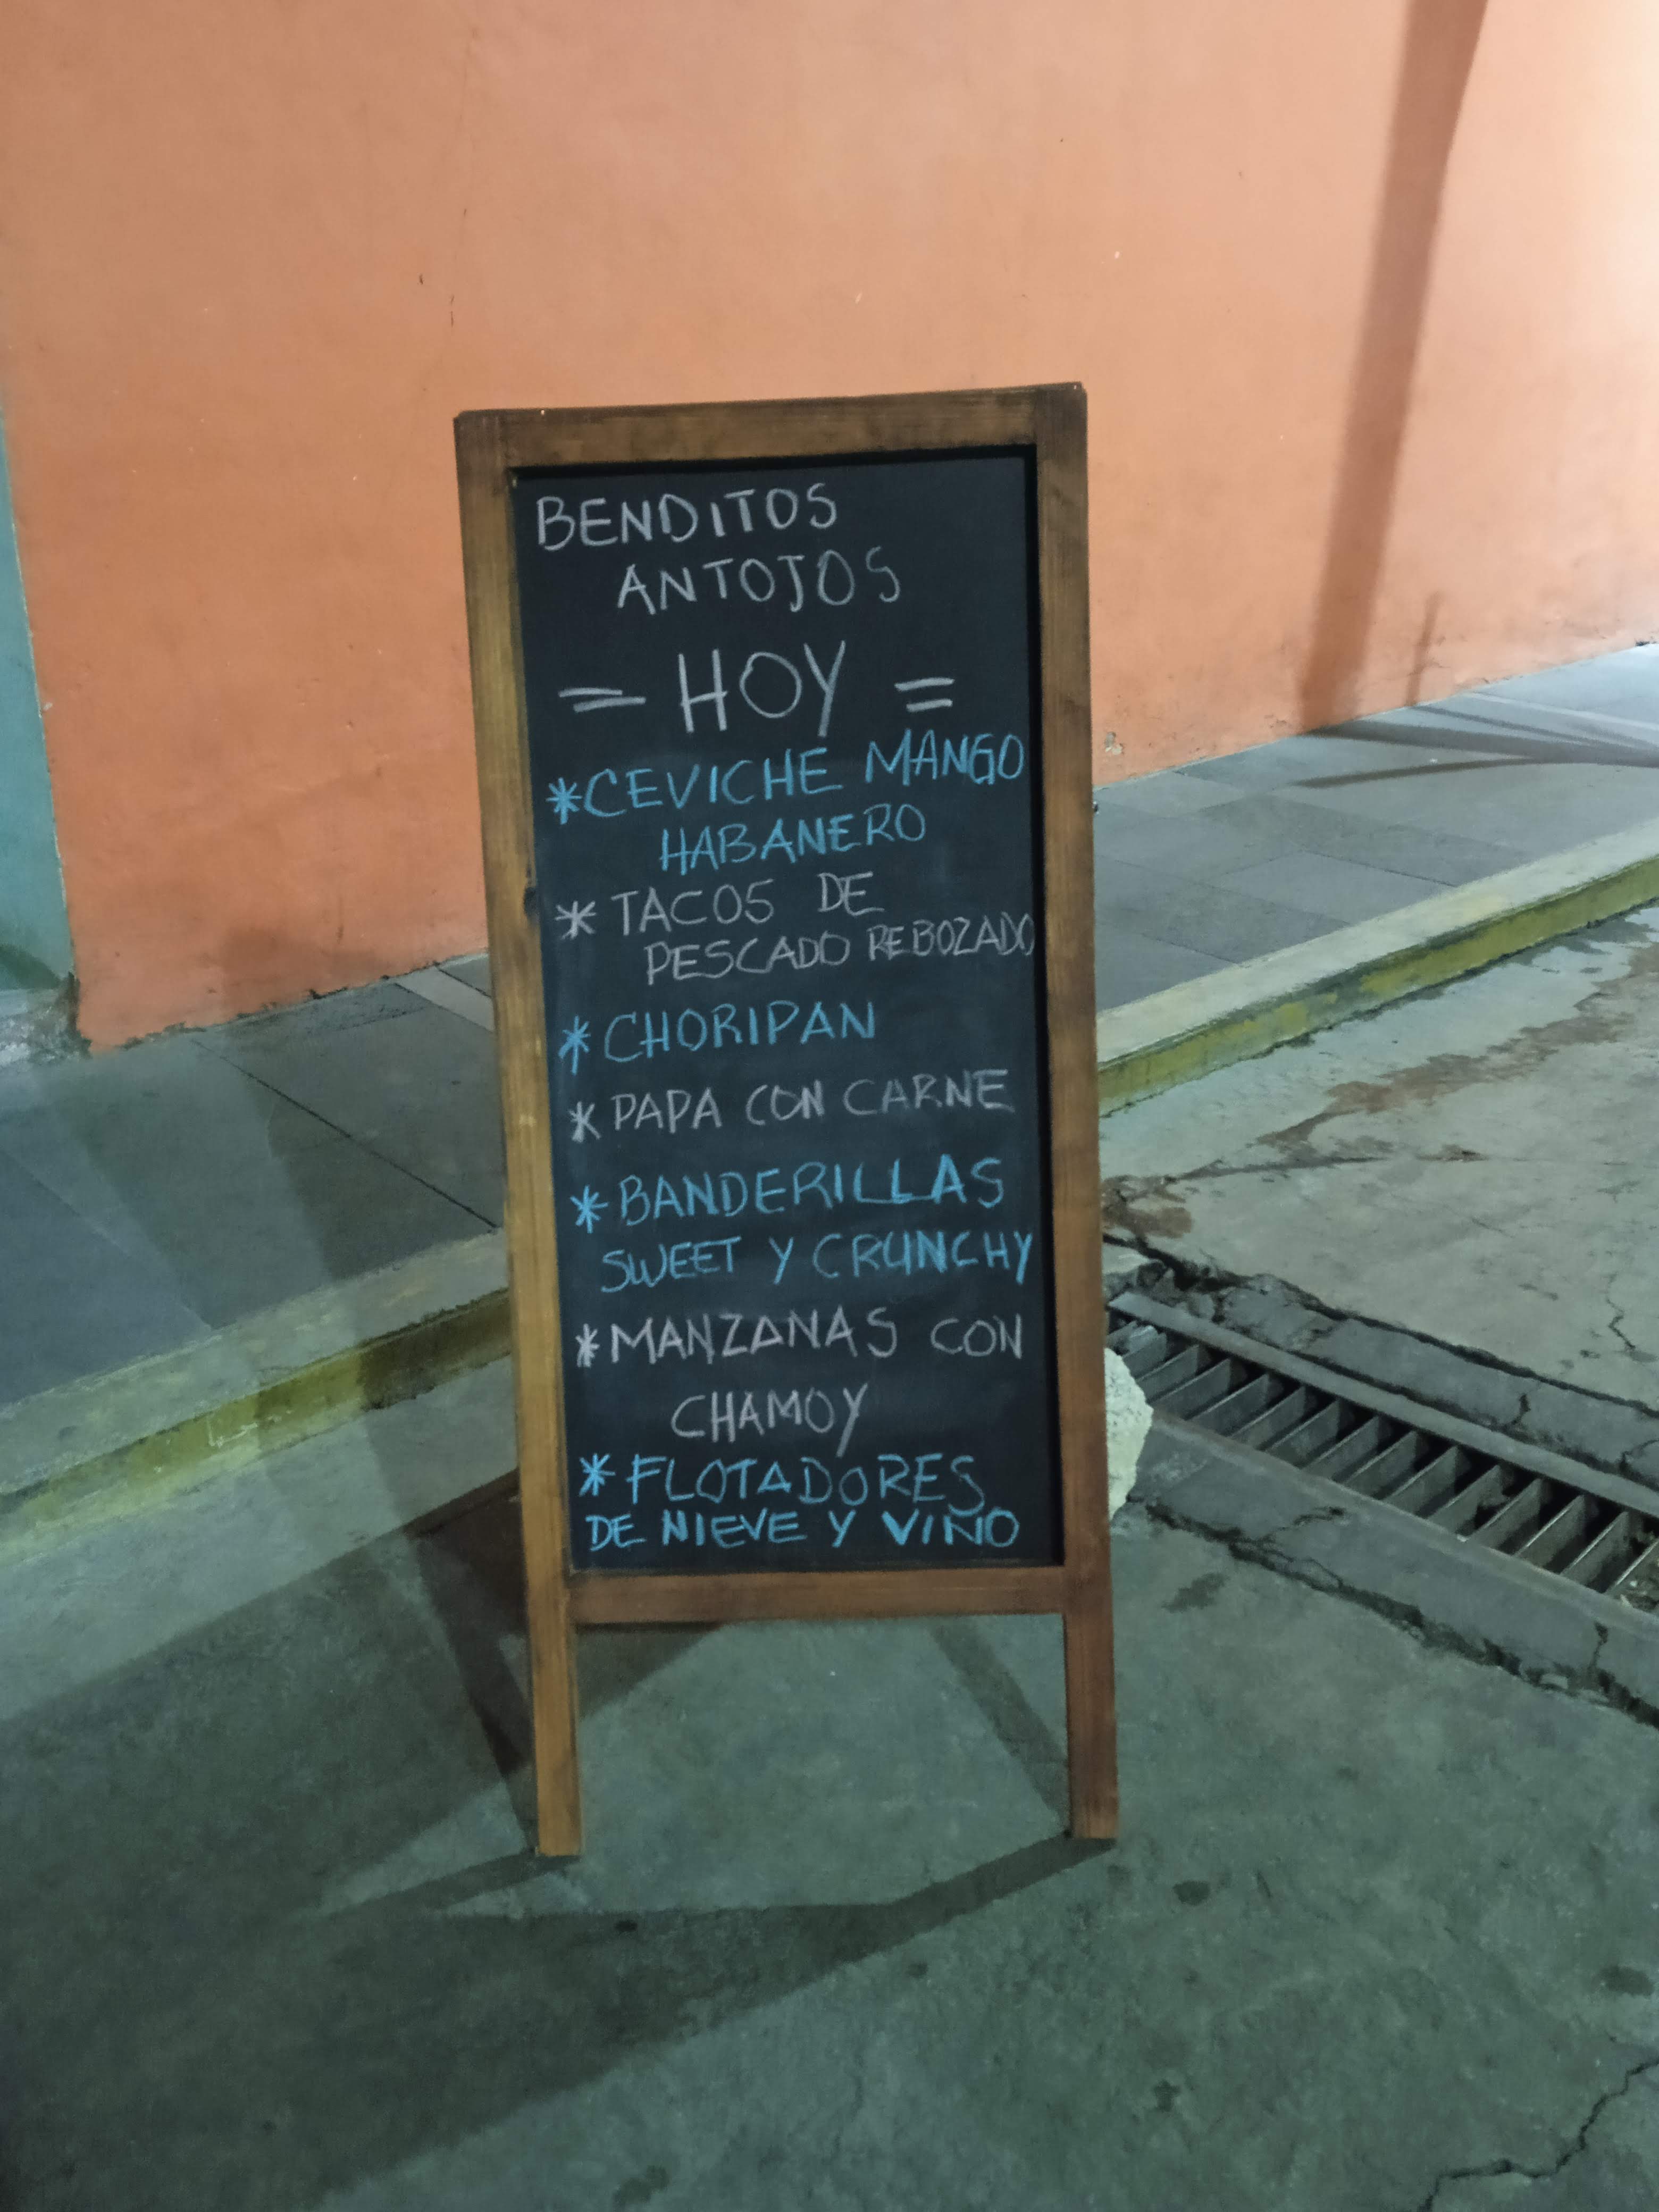 BENDITOS
ANTOJOS
= HOY =
*CEVICHE MANGO
HABANERO
* TACOS DE
PESCADO REBOZADO
* CHORIPAN
* PAPA CON CARNE
* BANDERILLAS
SWEET Y CRUNCHY
* MANZANAS CON
CHAMOY
* FLOTADORES
DE NIEVE Y VINO